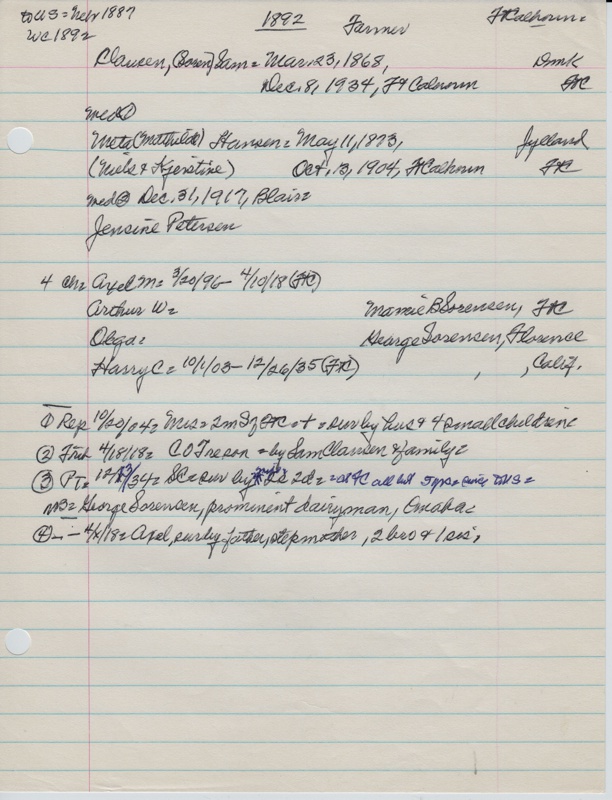 to US = Nebr 1887
WC 1892
1892 Farmer Ft Calhoun =
Clausen, (Boren) Sam = Mar. 23, 1868, Dmk
Dec. 8, 1934, Ft Calhoun FC
md ①
Meta (Mathilde) Hansen = May 11, 1873, Jylland
(Niels & Kjerstine) Oct. 13, 1904, Ft Calhoun FC
md ② Dec. 31, 1917, Blair
Jensine Petersen
4 ch = Axel M = 3/20/96 - 4/10/18 (FC)
Arthur W =
Mamie B Sorensen, FC
Olga =
George Sorensen, Florence
Harry C = 10/1/03 - 12/26/35 (FC) , , Calif.
① Rep 10/20/04 = Mrs = 2m S of FC = + = sur by hus & 4 small children =
② 4/18/18 = = by Sam Clausen & family =
③ PT = 34 = SC = sur by 2s 2d = = at FC all but
= George Sorensen, prominent dairyman, Omaha =
④ - - 4/ /18 = Axel, sur by father, stepmother, 2 bro & 1 sis,